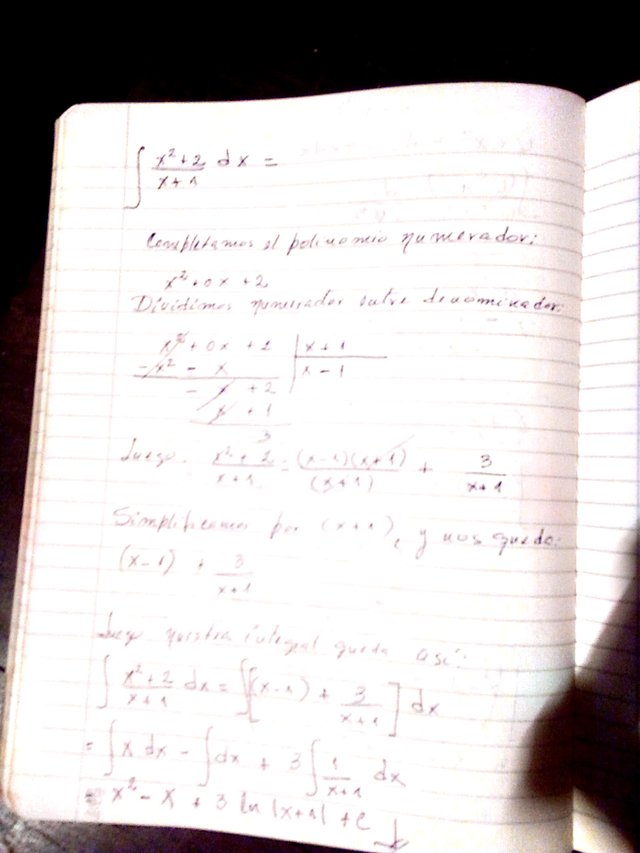 ∫ x²+2 / x+1 dx =
Completamos el polinomio numerador:
x² + 0x + 2
Dividimos numerador entre denominador:
x² + 0x + 2 | x + 1
- x² - x | x - 1
- x + 2
x + 1
3
Luego. x² + 2 / x+1 = (x-1)(x+1) / (x+1) + 3 / x+1
Simplificamos por (x+1), y nos queda:
(x-1) + 3 / x+1
Luego nuestra integral queda así:
∫ x²+2 / x+1 dx = ∫[(x-1) + 3 / x+1] dx
= ∫x dx - ∫dx + 3∫ 1 / x+1 dx
= x² - x + 3 ln |x+1| + c